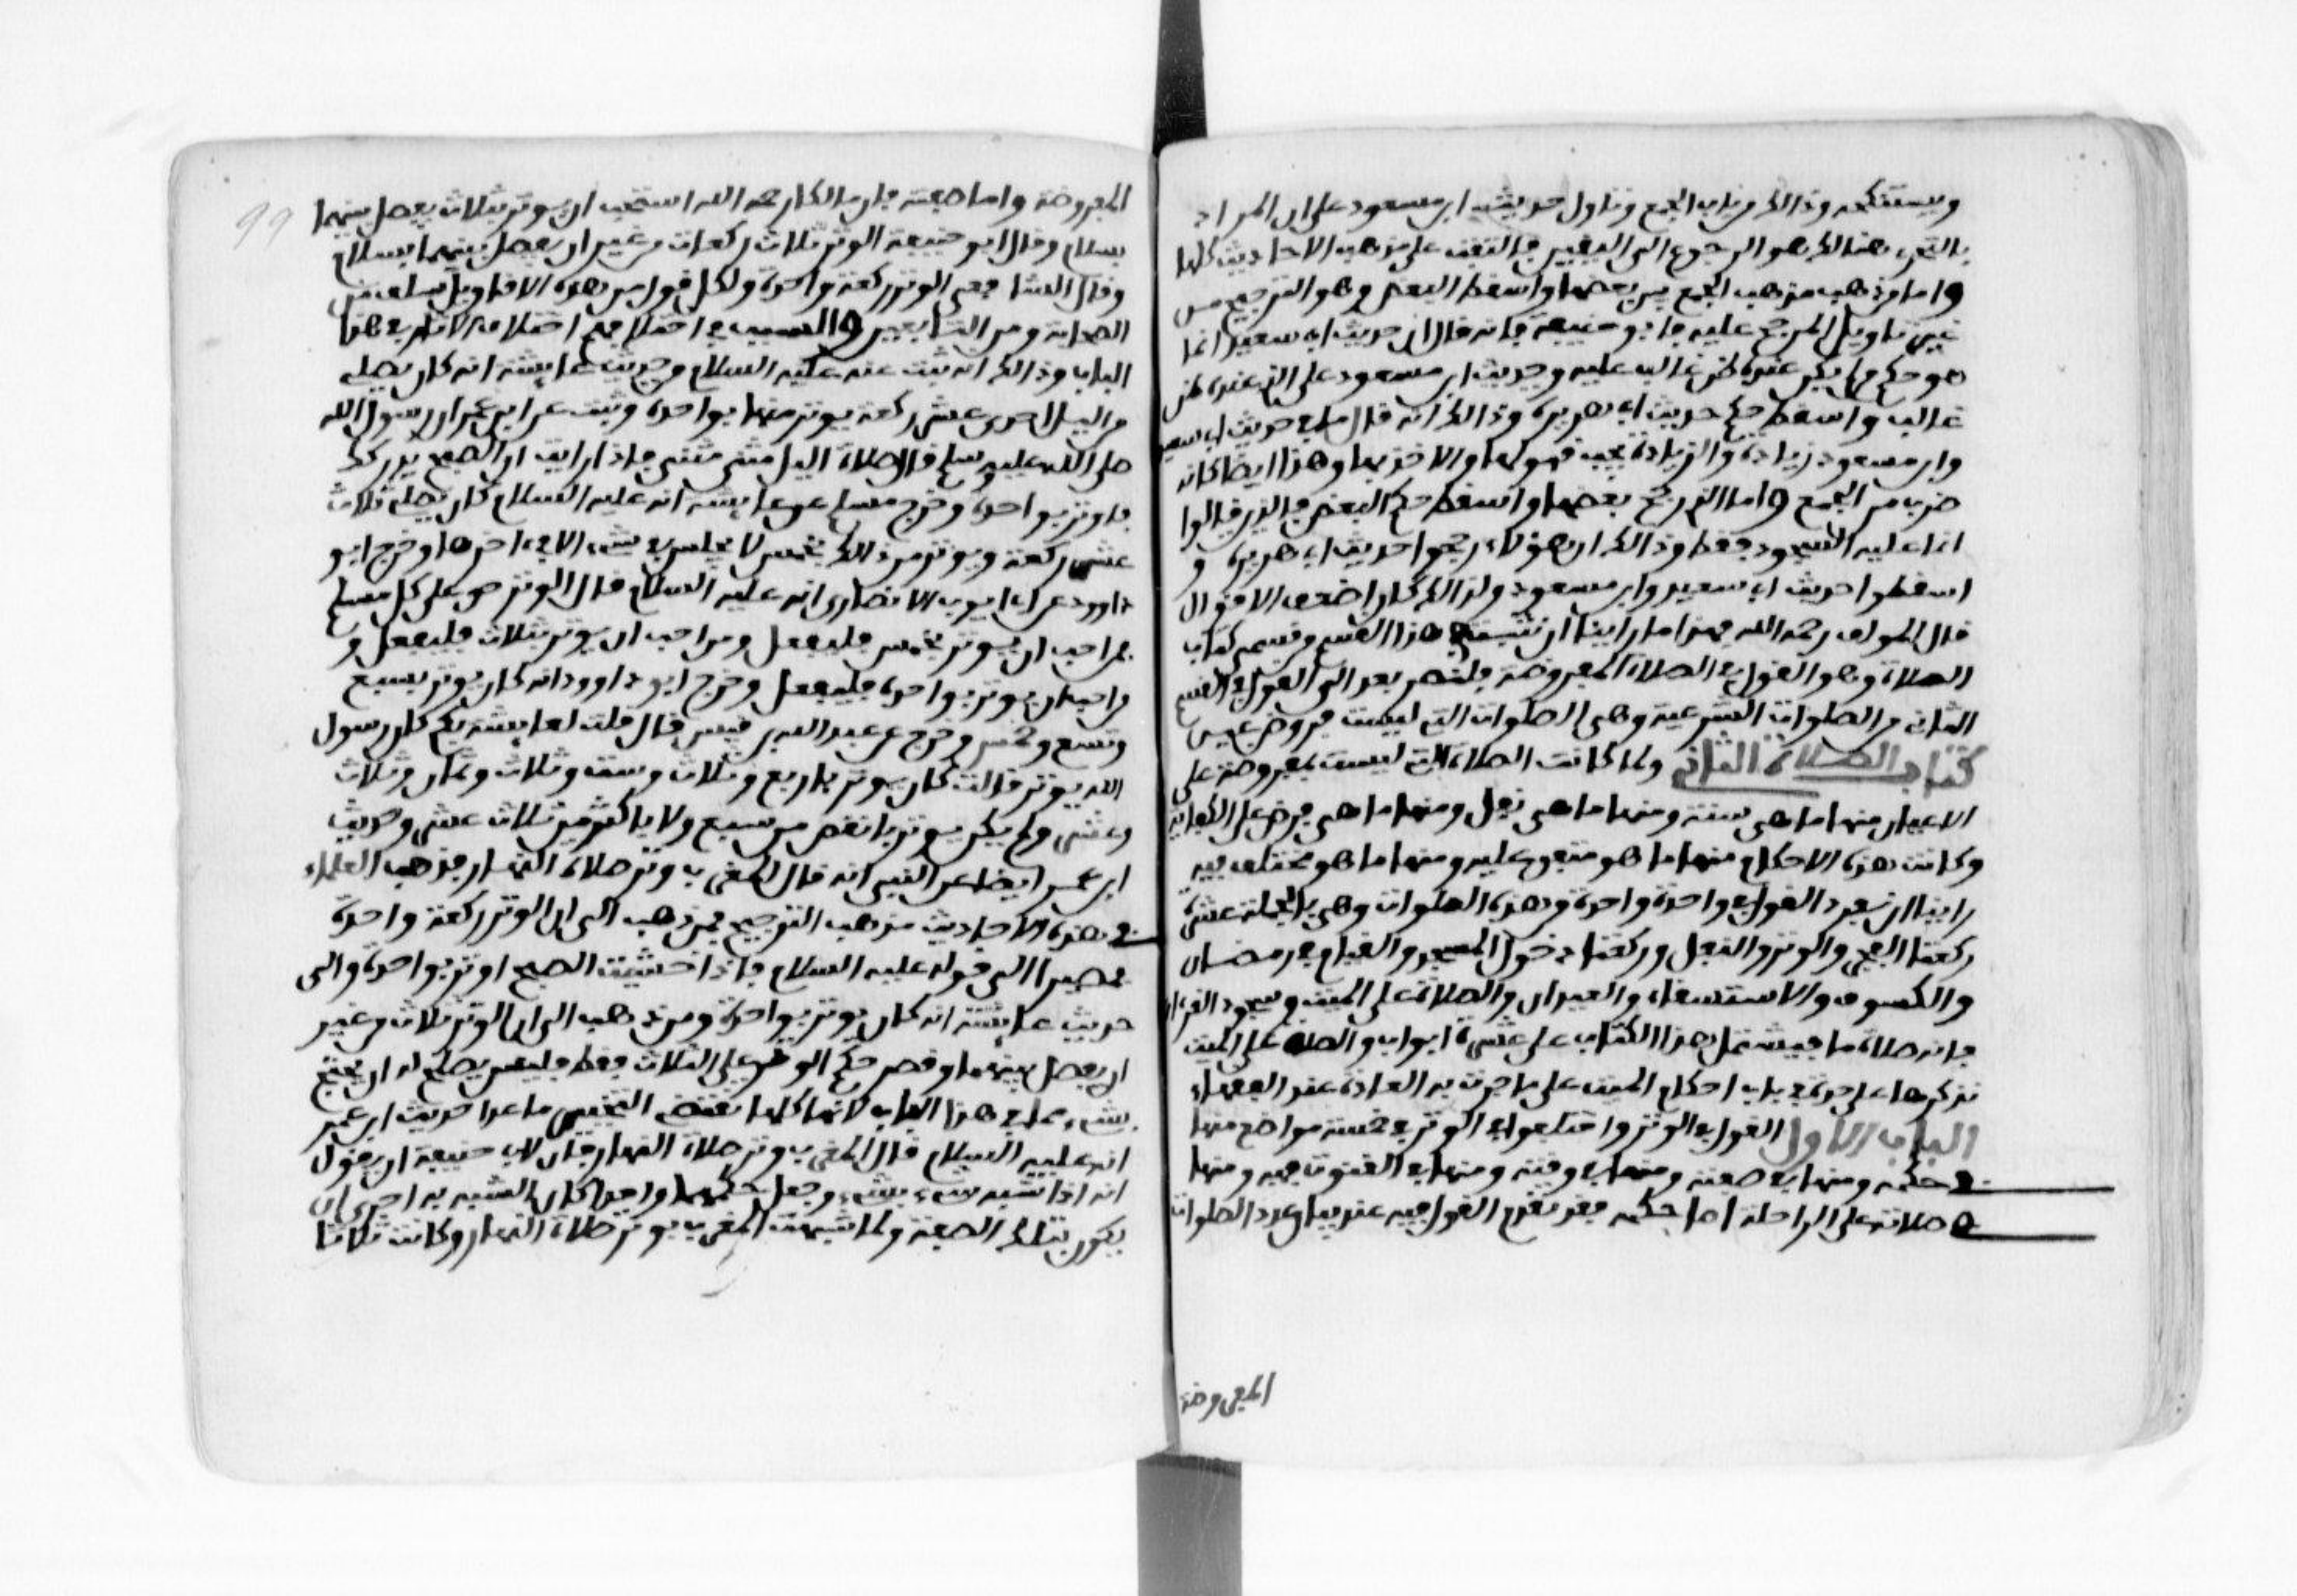 ويستنكحه وذالك من باب الجمع وتاول حديث ابن مسعود على ان المراد
بالتحري هنالك هو الرجوع الى اليقين فالتفت على مذهبه الاحاديث كلها
واما من ذهب مذهب الجمع بين بعضها واسقط البعض وهو الترجيح من
غير تاويل المرجح عليه فابو حنيفة فانه قال ان حديث ابي سعيد انما
هو حكم من لم يكن عنده ظن غالب عليه وحديث ابن مسعود على الذي عنده ظن
غالب واسقط حكم حديث ابي هريرة وذالك انه قال ما في حديث ابي سعيد
وابن مسعود زيادة والزيادة يجب قبولها والاخذ بها وهذا ايضا كانه
ضرب من الجمع واما الذي رجح بعضها واسقط حكم البعض فالذين قالوا
انما عليه السجود فقط وذالك ان هؤلاء رجحوا حديث ابي هريرة و
اسقطوا حديث ابي سعيد وابن مسعود ولذالك كان اضعف الاقوال
قال المولف رحمه الله فهذا ما راينا ان نثبته في هذا القسم من قسمي كتاب
الصلاة وهو القول في الصلاة المفروضة فلنصر بعد الى القول في القسم
الثاني من الصلوات الشرعية وهي الصلوات التي ليست فروض عين
كتاب الصلاة الثاني ولما كانت الصلاة التي ليست بمفروضة على
الاعيان منها ما هي سنة ومنها ما هي نفل ومنها ما هي فرض على الكفاية
وكانت هذه الاحكام منها ما هو متفق عليه ومنها ما هو مختلف فيه
راينا ان نفرد القول في واحدة واحدة من هذه الصلوات وهي بالجملة عشرة
ركعتا الفجر والوتر والنفل وركعتا دخول المسجد والقيام في رمضان
والكسوف والاستسقاء والعيدان والصلاة على الميت وسجود القرءان
فانه صلاة ما فيشتمل هذا الكتاب على عشرة ابواب والصلاة على الميت
نذكرها على حدة في باب احكام الميت على ما جرت به العادة عند الفقهاء
الباب الاول القول في الوتر واختلفوا في الوتر في خمسة مواضع منها
في حكمه ومنها في صفته ومنها في وقته ومنها في القنوت فيه ومنها
في صلاته على الراحلة اما حكمه فقد تقدم القول فيه عند بيان عدد الصلوات
المفروضة
99
المفروضة واما صفته فان مالكا رحمه الله استحب ان يوتر بثلاث يفصل بينها
بسلام وقال ابو حنيفة الوتر ثلاث ركعات من غير ان يفصل بينهما بسلام
وقال الشافعي الوتر ركعة واحدة ولكل قول من هذه الاقاويل سلف من
الصحابة ومن التابعين والسبب في اختلافهم اختلاف الاثار في هذا
الباب وذالك انه ثبت عنه عليه السلام من حديث عايشة انه كان يصلي
من اليل احدى عشر ركعة يوتر منها بواحدة وثبت عن ابن عمر ان رسول الله
صلى الله عليه وسلم قال صلاة اليل مثنى مثنى فاذا رايت ان الصبح يدركك
فاوتر بواحدة وخرج مسلم عن عايشة انه عليه السلام كان يصلي ثلاث
عشر ركعة ويوتر من ذالك بخمس لا يجلس في شيء الا في ءاخرها وخرج ابو
داوود عن ابي ايوب الانصاري انه عليه السلام قال الوتر حق على كل مسلم
فمن احب ان يوتر بخمس فليفعل ومن احب ان يوتر بثلاث فليفعل و
من احب ان يوتر بواحدة فليفعل وخرج ابو داوود انه كان يوتر بسبع
وتسع وخمس وخرج عن عبد الله بن قيس قال قلت لعايشة بكم كان رسول
الله يوتر قالت كان يوتر باربع وثلاث وست وثلاث وثمان وثلاث
وعشر ولم يكن يوتر بانقص من سبع ولا باكثر من ثلاث عشر وحديث
ابن عمر ايضا عن النبي انه قال المغرب وتر صلاة النهار فذهب العلماء
في هذه الاحاديث مذهب الترجيح فمن ذهب الى ان الوتر ركعة واحدة
فمصيرا الى قوله عليه السلام فاذا خشيت الصبح اوتر بواحدة والى
حديث عايشة انه كان يوتر بواحدة ومن ذهب الى ان الوتر ثلاث من غير
ان يفصل بينهما وقصر حكم الوتر على الثلاث فقط فليس يصلح له ان يحتج
بشيء مما في هذا الباب لانها كلها تقتضي التخيير ما عدا حديث ابن عمر
انه عليه السلام قال المغرب وتر صلاة النهار فان لابي حنيفة ان يقول
انه اذا شبه شيء بشيء وجعل حكمهما واحدا كان المشبه به احرى ان
يكون بتلك الصفة ولما شبهت المغرب بوتر صلاة النهار وكانت ثلاثا